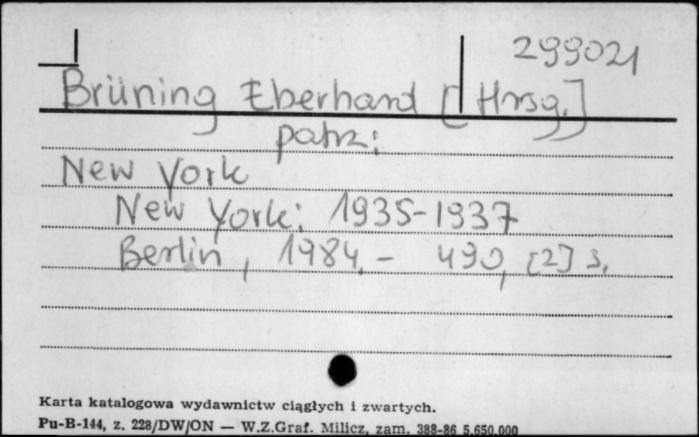 299021
Brüning Eberhard [Hrsg.]
patrz:
New York
New York: 1935-1937
Berlin, 1984.- 490, [2] s.
Karta katalogowa wydawnictw ciągłych i zwartych.
Pu-B-144, z. 228/DW/ON — W.Z.Graf. Milicz, zam. 388-86 5.650.000